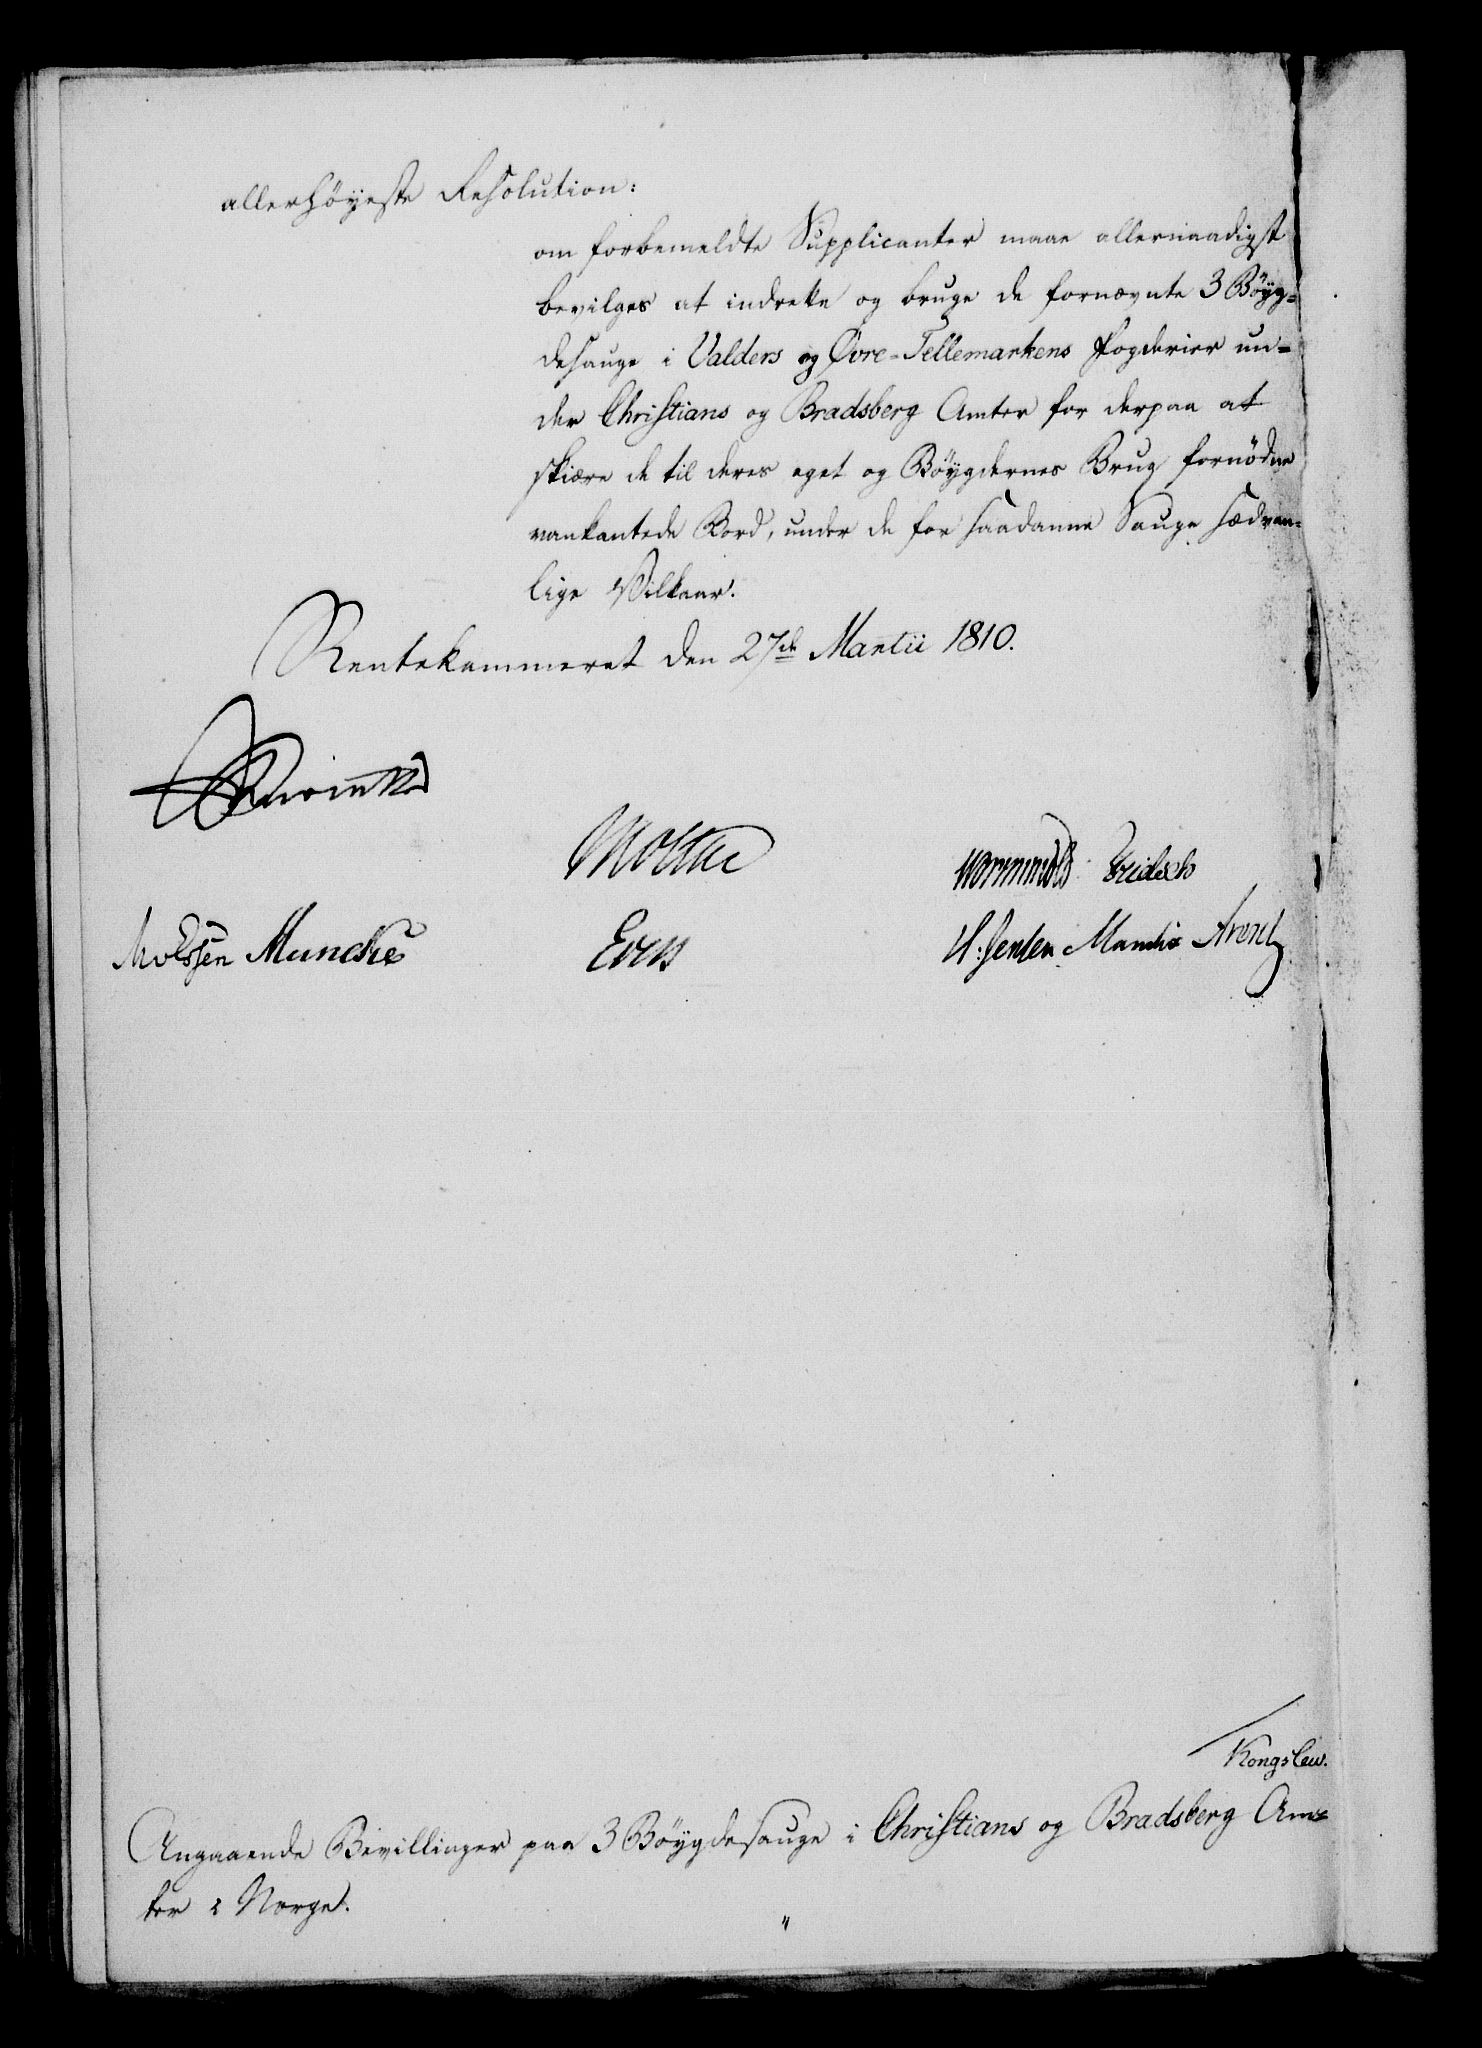 allerhöyeste Resolution:
om forbemeldte Supplicanter maae allernaadigst
bevilges at indrette og bruge de fornævnte 3 Böyg-
desauge i Valders og Øvre-Tellemarkens Fogderier un-
der Christians og Bradsberg Amter for derpaa at
skiære de til deres eget og Böygdernes Brug fornödne
vankantede Bord, under de for saadanne Sauge sædvan-
lige Vilkaar.
Rentekammeret den 27de Martii 1810.
Moltke
Wormskiold
Muncke H. Jensen Mandix Arentz
Kongslew.
Angaaende Bevillinger paa 3 Böygdesauge i Christians og Bradsberg Am-
ter i Norge.